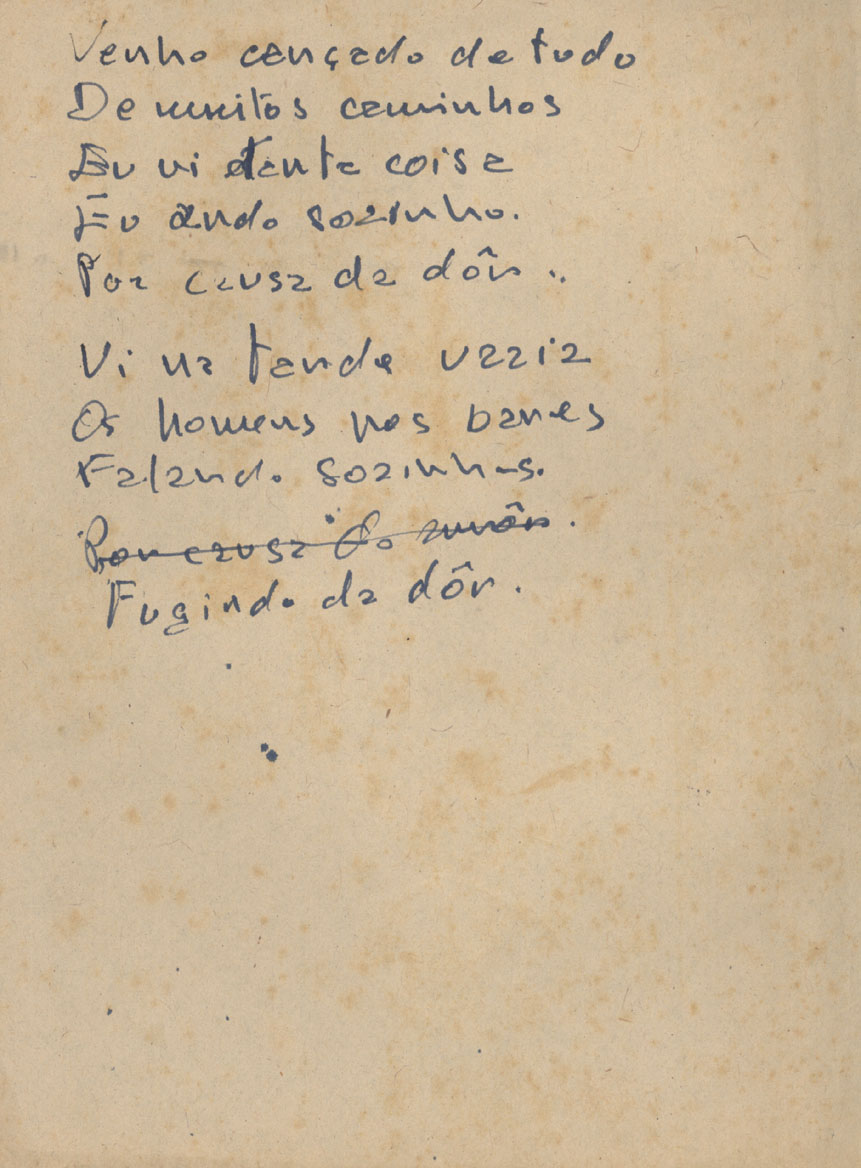 Venho cançado de tudo
De muitos caminhos
Eu vi tanta coisa
Eu ando sozinho.
Por causa da dôr..
Vi na tarde vazia
Os homens nos bares
Falando sozinhos.
Por causa do amôr.
Fugindo da dôr.